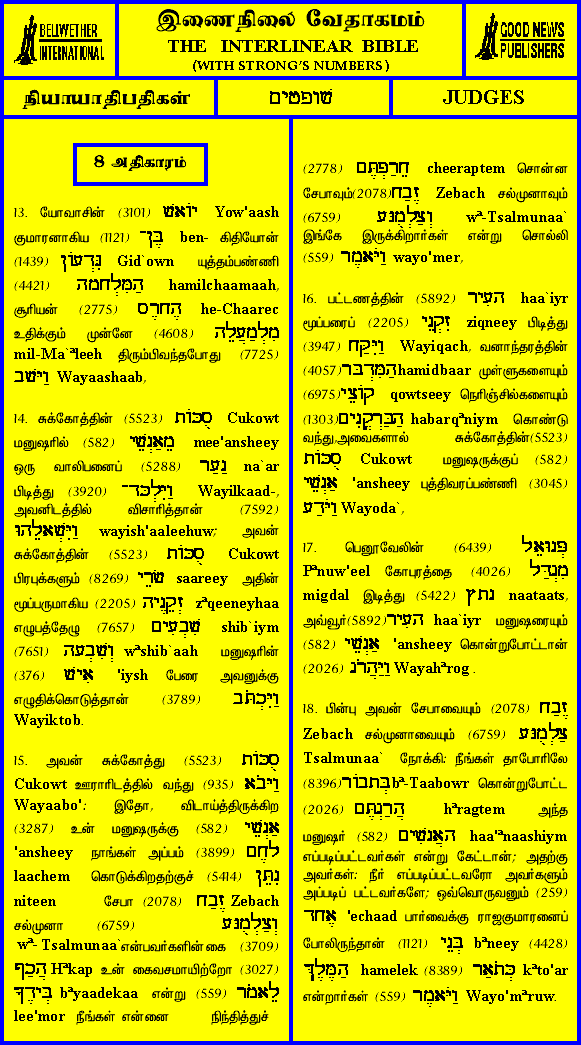 BELLWETHER
INTERNATIONAL
இணைநிலை வேதாகமம்
THE INTERLINEAR BIBLE
(WITH STRONG'S NUMBERS)
GOOD NEWS
PUBLISHERS
நியாயாதிபதிகள்
שופטים
JUDGES
8 அதிகாரம்
13. யோவாசின் (3101) יוֹאָשׁ Yow'aash
குமாரனாகிய (1121) בֶּן־ ben- கிதியோன்
(1439) גִּדְעוֹן Gid`own யுத்தம்பண்ணி
(4421) הַמִּלְחמה hamilchaamaah,
சூரியன் (2775) הֶחָרֶס he-Chaarec
உதிக்கும் முன்னே (4608) מִלְמַעֲלֵה
mil-Ma`ªleeh திரும்பிவந்தபோது (7725)
וַיּשׁב Wayaashaab,
14. சுக்கோத்தின் (5523) סֻכּוֹת Cukowt
மனுஷரில் (582) מֵאַנְשֵׁי mee'ansheey
ஒரு வாலிபனைப் (5288) נַעַר na`ar
பிடித்து (3920) וַיִּלְכּד־ Wayilkaad-,
அவனிடத்தில் விசாரித்தான் (7592)
וַיִּשְׁאלֵהוּ wayish'aaleehuw; அவன்
சுக்கோத்தின் (5523) סֻכּוֹת Cukowt
பிரபுக்களும் (8269) שׂרֵי saareey அதின்
மூப்பருமாகிய (2205) זְקֵנֶיה zªqeeneyhaa
எழுபத்தேழு (7657) שִׁבְעִים shib`iym
(7651) וְשִׁבְעה wªshib`aah மனுஷரின்
(376) אִישׁ 'iysh பேரை அவனுக்கு
எழுதிக்கொடுத்தான் (3789) וַיִּכְתֹּב
Wayiktob.
15. அவன் சுக்கோத்து (5523) סֻכּוֹת
Cukowt ஊராரிடத்தில் வந்து (935) וַיּבֹא
Wayaabo': இதோ, விடாய்த்திருக்கிற
(3287) உன் மனுஷருக்கு (582) אַנְשֵׁי
'ansheey நாங்கள் அப்பம் (3899) לחֶם
laachem கொடுக்கிறதற்குச் (5414) נִתֵּן
niteen சேபா (2078) זֶבַח Zebach
சல்முனா (6759) וְצַלְמֻנּע
wª- Tsalmunaa`என்பவர்களின் கை (3709)
הֲכַף Hªkap உன் கைவசமாயிற்றோ (3027)
בְּידֶךּ bªyaadekaa என்று (559) לֵאמֹר
lee'mor நீங்கள் என்னை நிந்தித்துச்
(2778) חֵרַפְתֶּם cheeraptem சொன்ன
சேபாவும்(2078)זֶבַח Zebach சல்முனாவும்
(6759) וְצַלְמֻנּע wª-Tsalmunaa`
இங்கே இருக்கிறார்கள் என்று சொல்லி
(559) וַיֹּאמֶר wayo'mer,
16. பட்டணத்தின் (5892) העִיר haa`iyr
மூப்பரைப் (2205) זִקְנֵי ziqneey பிடித்து
(3947) וַיִּקַּח Wayiqach, வனாந்தரத்தின்
(4057)הַמִּדְבּר hamidbaar முள்ளுகளையும்
(6975)קוֹצֵי qowtseey நெரிஞ்சில்களையும்
(1303)הַבַּרְקֳנִים habarqªniym கொண்டு
வந்து,அவைகளால் சுக்கோத்தின்(5523)
סֻכּוֹת Cukowt மனுஷருக்குப் (582)
אַנְשֵׁי 'ansheey புத்திவரப்பண்ணி (3045)
וַיֹּדַע Wayoda`,
17. பெனூவேலின் (6439) פְּנוּאֵל
Pªnuw'eel கோபுரத்தை (4026) מִגְדַּל
migdal இடித்து (5422) נתץ naataats,
அவ்வூர்(5892)העִיר haa`iyr மனுஷரையும்
(582) אַנְשֵׁי 'ansheey கொன்றுபோட்டான்
(2026) וַיַּהֲרֹג Wayahªrog .
18. பின்பு அவன் சேபாவையும் (2078) זֶבַח
Zebach சல்முனாவையும் (6759) צַלְמֻנּע
Tsalmunaa` நோக்கி: நீங்கள் தாபோரிலே
(8396)בְּתבוֹר bª-Taabowr கொன்றுபோட்ட
(2026) הֲרַגְתֶּם hªragtem அந்த
மனுஷர் (582) האֲנשִׁים haa'ªnaashiym
எப்படிப்பட்டவர்கள் என்று கேட்டான்; அதற்கு
அவர்கள்: நீர் எப்படிப்பட்டவரோ அவர்களும்
அப்படிப் பட்டவர்களே; ஒவ்வொருவனும் (259)
אֶחד 'echaad பார்வைக்கு ராஜகுமாரனைப்
போலிருந்தான் (1121) בְּנֵי bªneey (4428)
הַמֶּלֶךּ hamelek (8389) כְּתֹאַר kªto'ar
என்றார்கள் (559) וַיֹּאמֶר Wayo'mªruw.